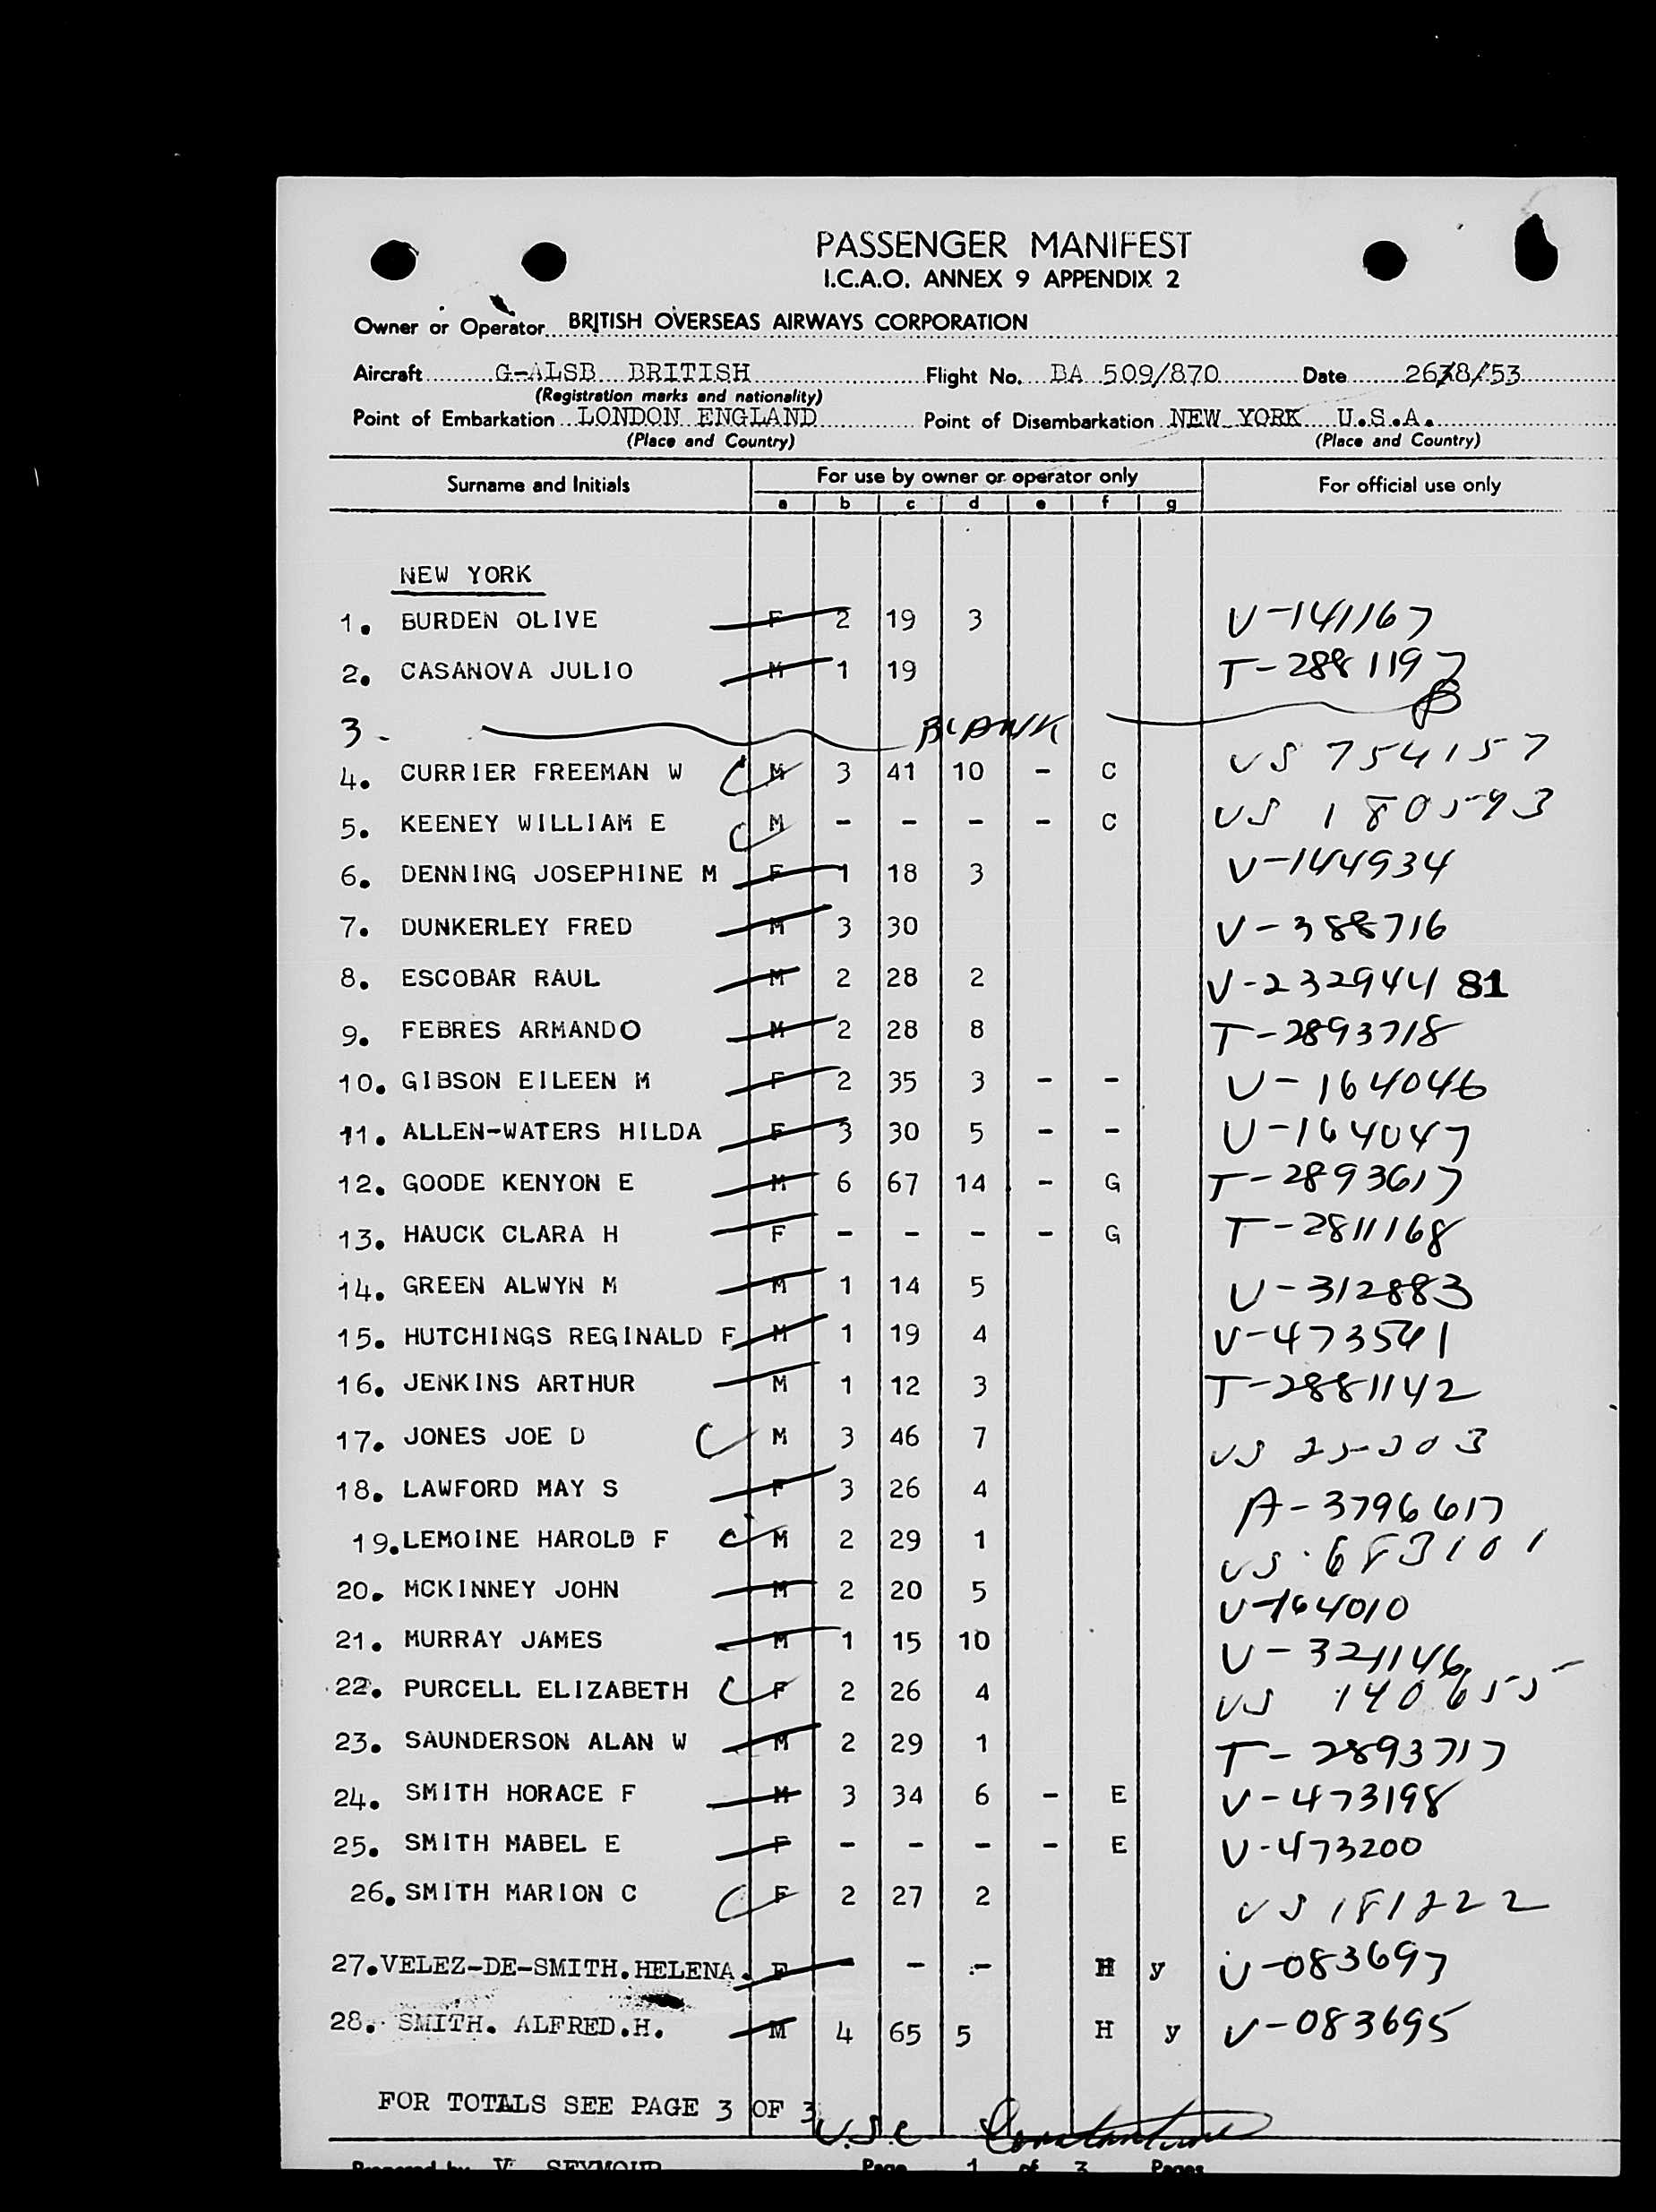 PASSENGER MANIFEST
I.C.A.O. ANNEX 9 APPENDIX 2
Owner or Operator BRITISH OVERSEAS AIRWAYS CORPORATION
Aircraft G-ALSB BRITISH Flight No. BA 509/870 Date 26/8/53
(Registration marks and nationality)
Point of Embarkation LONDON ENGLAND Point of Disembarkation NEW YORK U.S.A.
(Place and Country) (Place and Country)
Surname and Initials For use by owner or operator only For official use only
a b c d e f g
NEW YORK
1. BURDEN OLIVE F 2 19 3 V-141167
2. CASANOVA JULIO M 1 19 T-2881197
3 - BLANK
4. CURRIER FREEMAN W C M 3 41 10 - C US 754157
5. KEENEY WILLIAM E C M - - - - C US 180593
6. DENNING JOSEPHINE M F 1 18 3 V-144934
7. DUNKERLEY FRED M 3 30 V-388716
8. ESCOBAR RAUL M 2 28 2 V-232944 81
9. FEBRES ARMANDO M 2 28 8 T-2893718
10. GIBSON EILEEN M F 2 35 3 - - V-164046
11. ALLEN-WATERS HILDA F 3 30 5 - - V-164047
12. GOODE KENYON E M 6 67 14 - G T-2893617
13. HAUCK CLARA H F - - - - G T-2811168
14. GREEN ALWYN M M 1 14 5 V-312883
15. HUTCHINGS REGINALD F M 1 19 4 V-473541
16. JENKINS ARTHUR M 1 12 3 T-2881142
17. JONES JOE D C M 3 46 7 US
18. LAWFORD MAY S F 3 26 4 A-3796617
19. LEMOINE HAROLD F C M 2 29 1 US 683101
20. MCKINNEY JOHN M 2 20 5 V-164010
21. MURRAY JAMES M 1 15 10 V-321146
22. PURCELL ELIZABETH C F 2 26 4 US 140655
23. SAUNDERSON ALAN W M 2 29 1 T-2893717
24. SMITH HORACE F M 3 34 6 - E V-473198
25. SMITH MABEL E F - - - - E V-473200
26. SMITH MARION C C F 2 27 2 US 181222
27. VELEZ-DE-SMITH.HELENA. F - - - H y V-083697
28. SMITH. ALFRED.H. M 4 65 5 H y V-083695
FOR TOTALS SEE PAGE 3 OF 3
U.S.C
Prepared by V. SEYMOUR Page 1 of 3 Pages